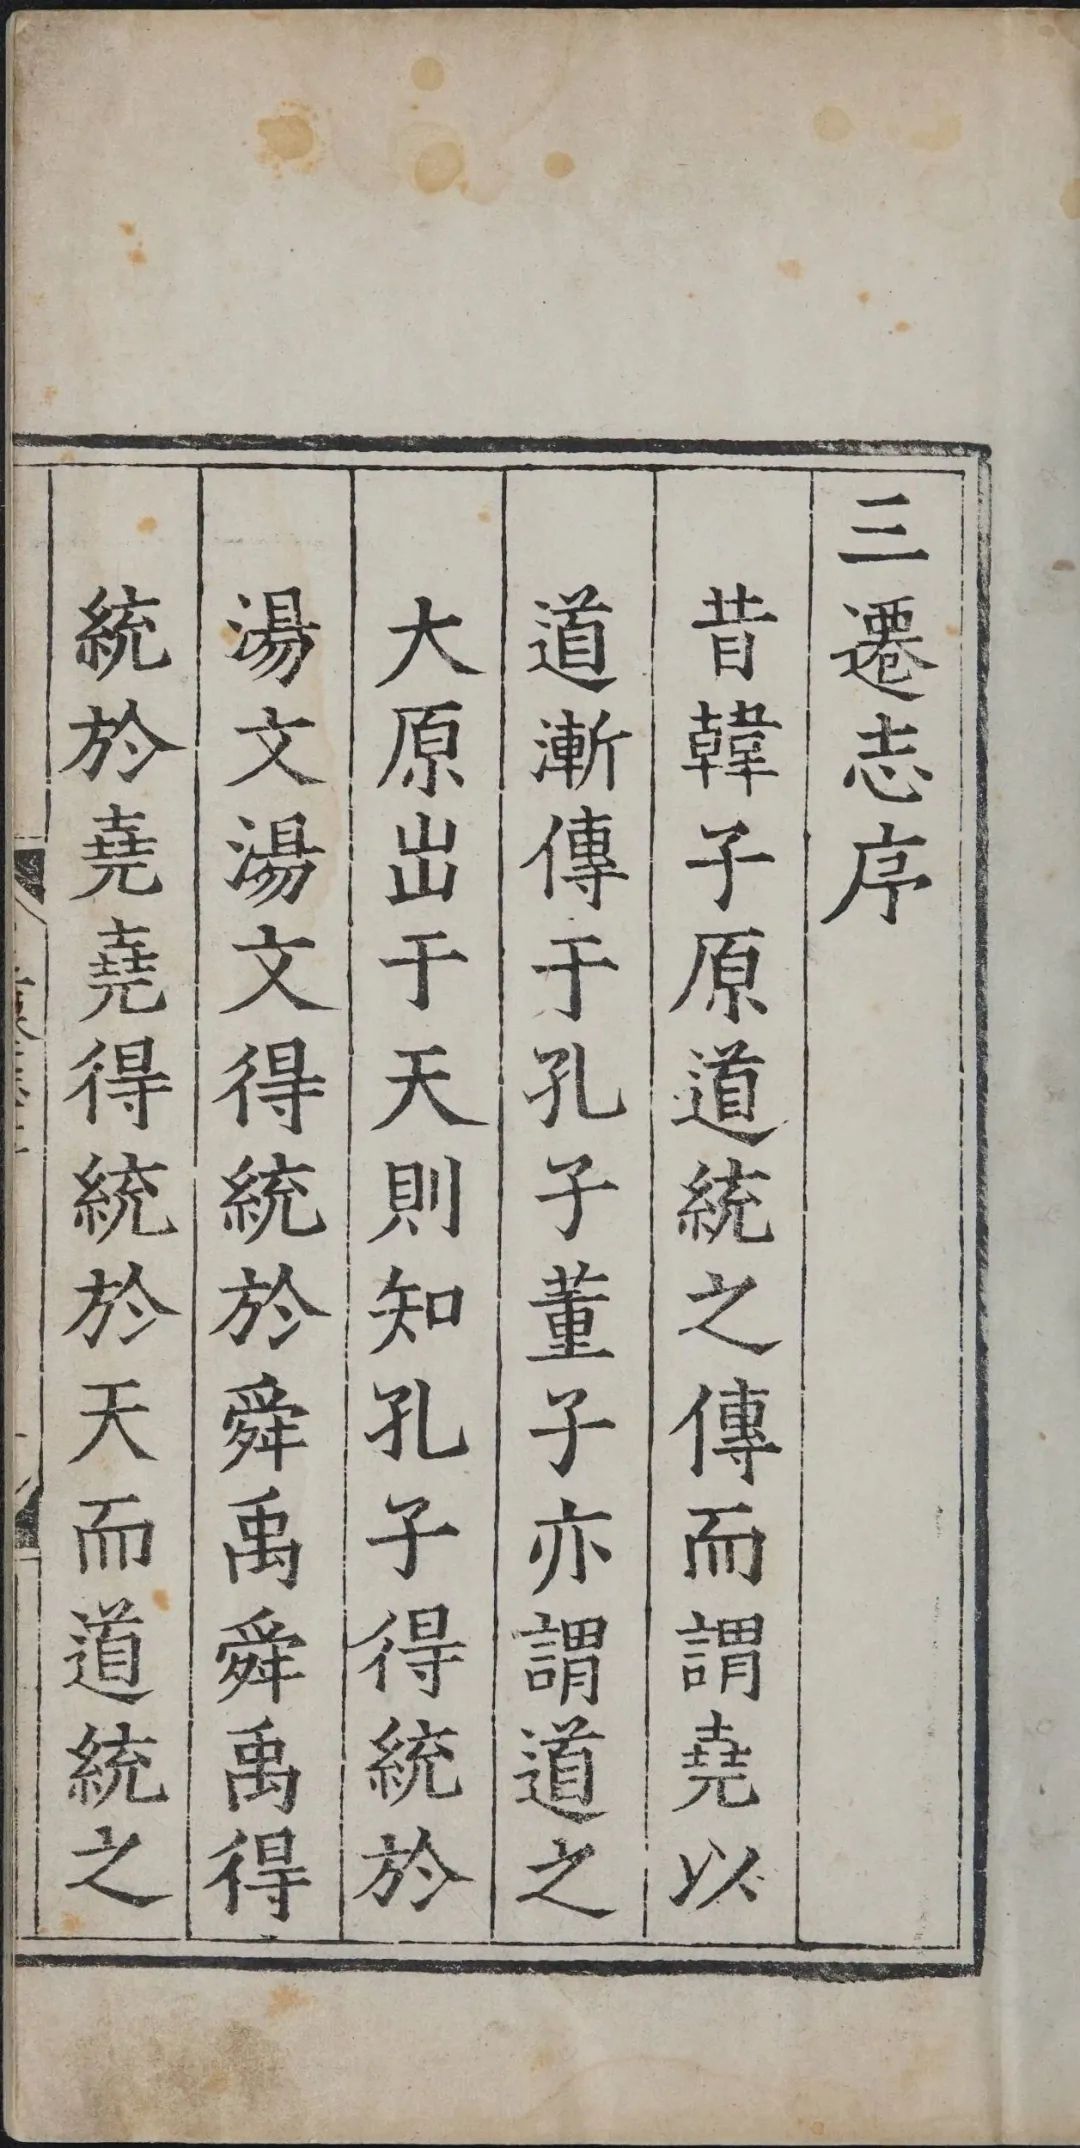 三遷志序
昔韓子原道統之傳而謂堯以
道漸傳于孔子董子亦謂道之
大原出于天則知孔子得統於
湯文湯文得統於舜禹舜禹得
統於堯堯得統於天而道統之